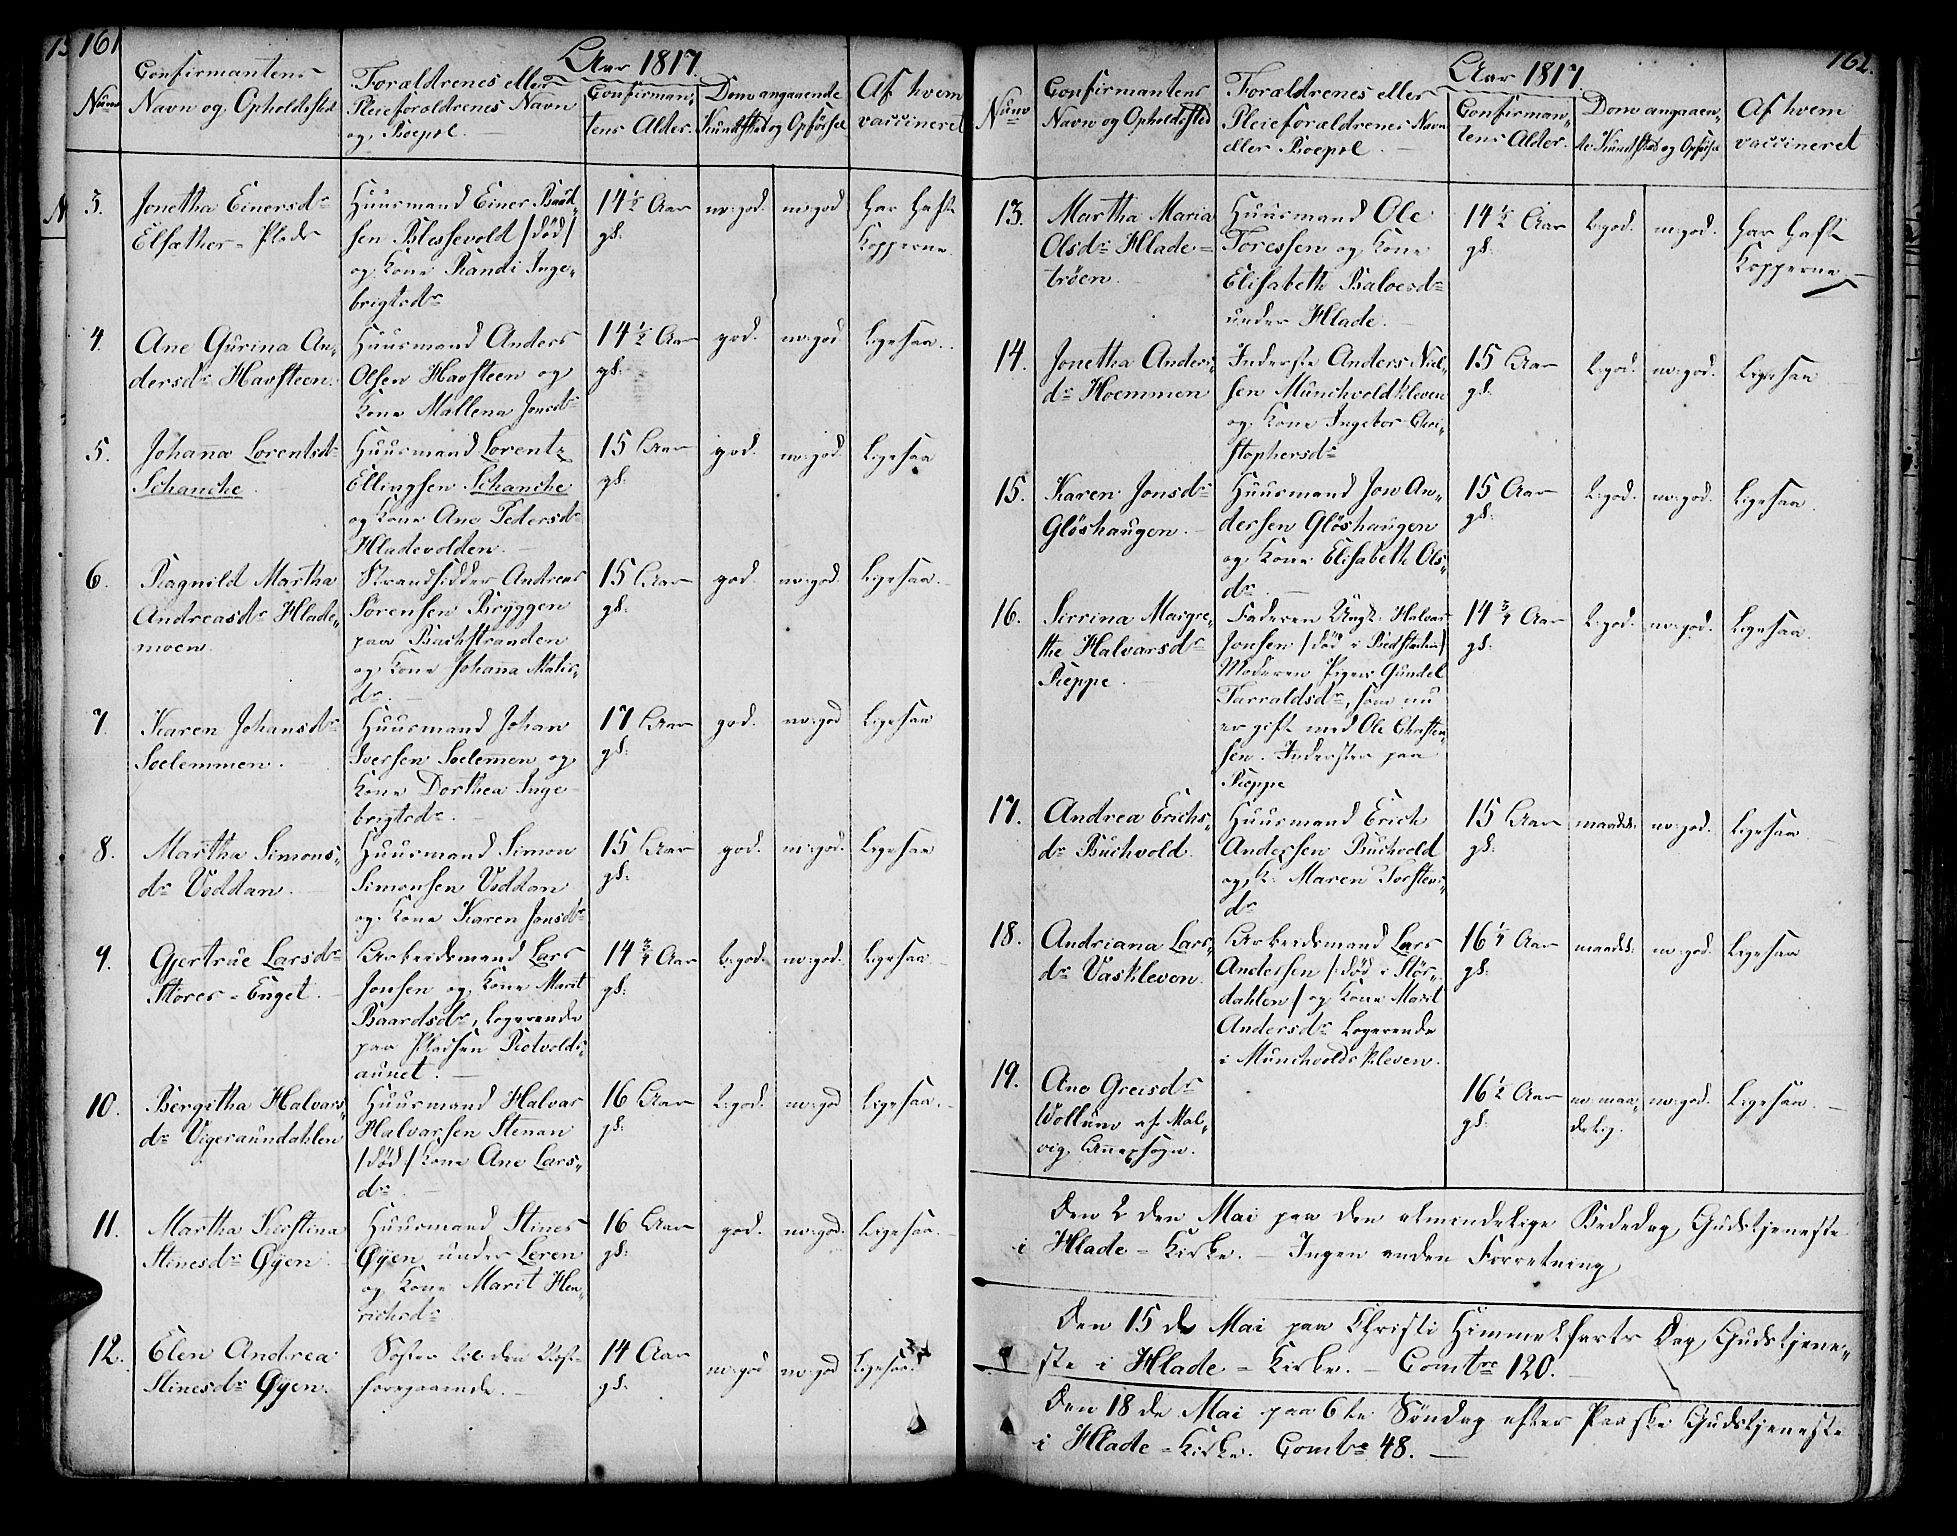 161
Aar 1817.
Num
Confirmantens
Navn og Opholdsted
Forældrenes eller
Pleieforældrenes Navn
og Boepæl.
Confirman-
tens Alder.
Dom angaaende
Kundskab og Opførsel
Af hvem
vaccineret
3.
Jonetha Einersdr
Elsæther-Plads
Huusmand Einer Baad-
sen Blessevold /død/
og Kone Randi Inge-
brigtsdr
14½ Aar
gl:
m:god.
m:god
har hafte
Kopperne
4.
Ane Gurina An-
dersdr Havsteen.
Huusmand Anders
Olsen Havsteen og
Kone Mallena Jonsdr
14½ Aar
gl.
god.
m:god
Ligesaa.
5.
Johanna Lorentsdr
Schanche.
Huusmand Lorentz
Ellingsen Schanche
og Kone Ane Pedersdr
Hladevolden.
15 Aar
gl.
god.
m:god
Ligesaa
6.
Ragnild Martha
Andreasdr Hlade-
moen.
Strandsidder Andreas
Sørensen Bryggen
paa Bachstranden
og Kone Johanna Matis-
dr.
15 Aar
gl.
god.
m:god.
Ligesaa.
7.
Karen Johansdr
Soelemmen.
Huusmand Johan
Iversen Soelemmen og
Kone Dorthea Inge-
brigtsdr.
17 Aar
gl:
god.
m:god
Ligesaa
8.
Martha Simons-
dr Vøddan.
Huusmand Simon
Simonsen Vøddan
og Kone Karen Jonsdr
15 Aar
gl:
god.
m:god.
Ligesaa
9.
Gjertrue Larsdr
Stores-Enget.
Arbeidsmand Lars
Jonsen og Kone Marit
Baardsdr, logerende
paa Pladsen Rotvolds-
aunet.
14¾ Aar
gl:
L:god.
m:god.
Ligesaa
10.
Bergitha Halvars-
dr Vigeraundahlen
Huusmand Halvar
Halvarsen Stenan
/død/ Kone Ane Lars-
dr.
16 Aar
gl:
L:god.
m:god
Ligesaa.
11.
Martha Kirstina
Stinesdr Øyen.
Huusmand Stines
Øyen under Leren
og Kone Marit Hen-
richsdr
16 Aar
gl:
god.
m:god.
Ligesaa.
12.
Elen Andrea
Stinesdr Øyen.
Søster til den næst
foregaaende.
14 Aar
gl:
m:god
m:god
Ligesaa
162.
Aar 1817.
Num
Confirmantens
Navn og Opholdsted
Forældrenes eller
Pleieforældrenes Navn
eller Boepæl.
Confirman-
tens Alder.
Dom angaaen-
de Kundskab og Opførsel
Af hvem
vaccineret
13.
Martha Maria
Olsdr Hlade-
trøen.
Huusmand Ole
Toressen og Kone
Elisabeth Baloesdr
under Hlade.
14½ Aar
gl:
L:god.
m:god.
har hafte
Kopperne
14.
Jonetha Anders-
dr Hoemmen
Inderste Anders Niel-
sen Munchvoldkleven
og Kone Ingebor Chri-
stophersdr
15 Aar
gl:
L:god.
m:god.
Ligesaa
15.
Karen Jonsdr
Gløshaugen.
Huusmand Jon An-
dersen Gløshaugen
og Kone Elisabeth Ols-
dr.
15 Aar
gl:
L:god.
m:god.
Ligesaa.
16.
Sirrina Margre-
the Halvarsdr
Reppe.
Faderen Ungk. Halvar
Jonsen /død i Bedstaden/
Moderen Pigen Gundel
Tarraldsdr, som nu
er gift med Ole Christen-
sen. Inderster paa
Reppe
14¾ Aar
gl:
L:god.
m:god.
Ligesaa.
17.
Andrea Erichs-
dr Buchvold.
Huusmand Erich
Andersen Buchvold
og K. Maren Torstens-
dr
15 Aar
gl:
maadel:
m:god.
Ligesaa
18.
Andriana Lars-
dr Vaskleven.
Arbeidsmand Lars
Andersen /død i Stør-
dahlen/ og Kone Marit
Andersdr Logerende
i Munchvoldskleven.
16¼ Aar
gl:
maadel:
m:god.
Ligesaa
19.
Ane Greisdr
Wollum af Mal-
vig Annexsogn.
16½ Aar
gl:
m:maa-
delig.
m:god.
Ligesaa.
Den 2 den Mai paa den almindelige Bededag Gudstjeneste
i Hlade-Kirke. – Ingen anden Forretning
Den 15 de Mai paa Christi Himmelfarts Dag Gudstjene-
ste i Hlade-Kirke. – Comtre 120.
Den 18 de Mai paa 6te Søndag efter Paaske Gudstjeneste
i Hlade-Kirke. Comtre 48.